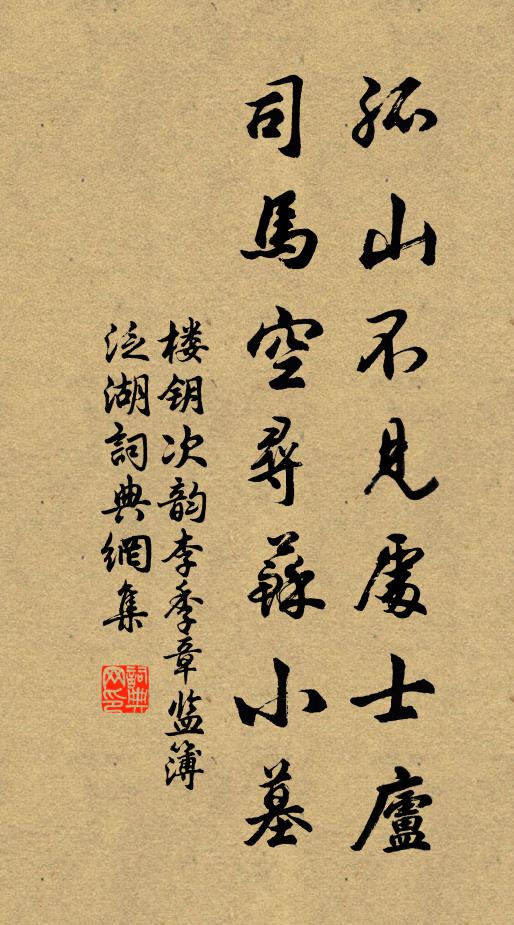 孤山不見處士廬
司馬空尋蘇小墓
楼钥次韵李季章监簿
泛湖詞典網集
詞典网印